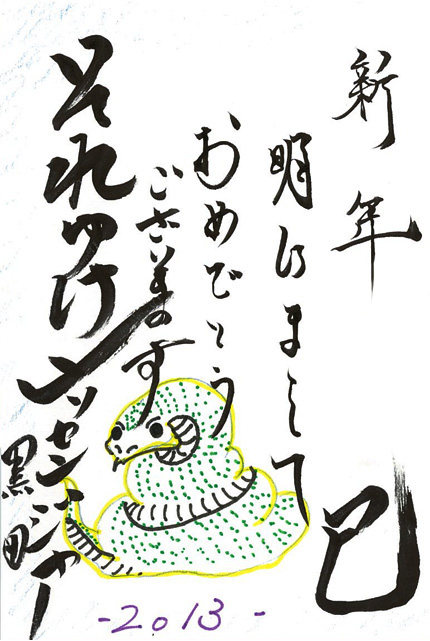 新年
巳
明けまして
おめでとう
ございます
それゆけメッセンジャー
黒田
-2013-